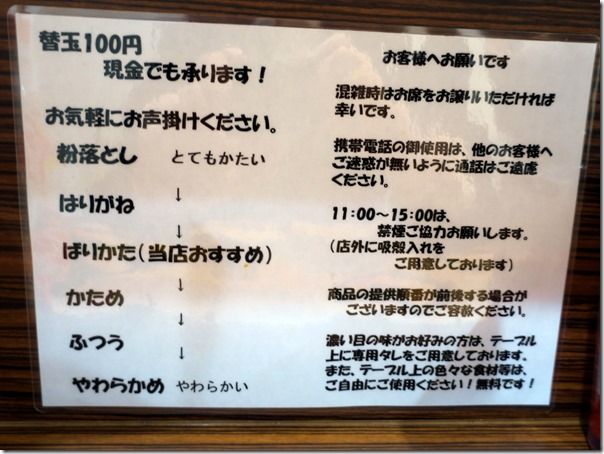 替玉100円
現金でも承ります！
お気軽にお声掛けください。
粉落とし とてもかたい
↓
はりがね
↓
ばりかた（当店おすすめ）
↓
かため
↓
ふつう
↓
やわらかめ やわらかい
お客様へお願いです
混雑時はお席をお譲りいただければ
幸いです。
携帯電話の御使用は、他のお客様へ
ご迷惑が無いように通話はご遠慮
ください。
11:00～15:00は、
禁煙ご協力お願いします。
（店外に吸殻入れを
ご用意しております）
商品の提供順番が前後する場合が
ございますのでご容赦ください。
濃い目の味がお好みの方は、テーブル
上に専用タレをご用意しております。
また、テーブル上の色々な食材等は、
ご自由にご使用ください！無料です！